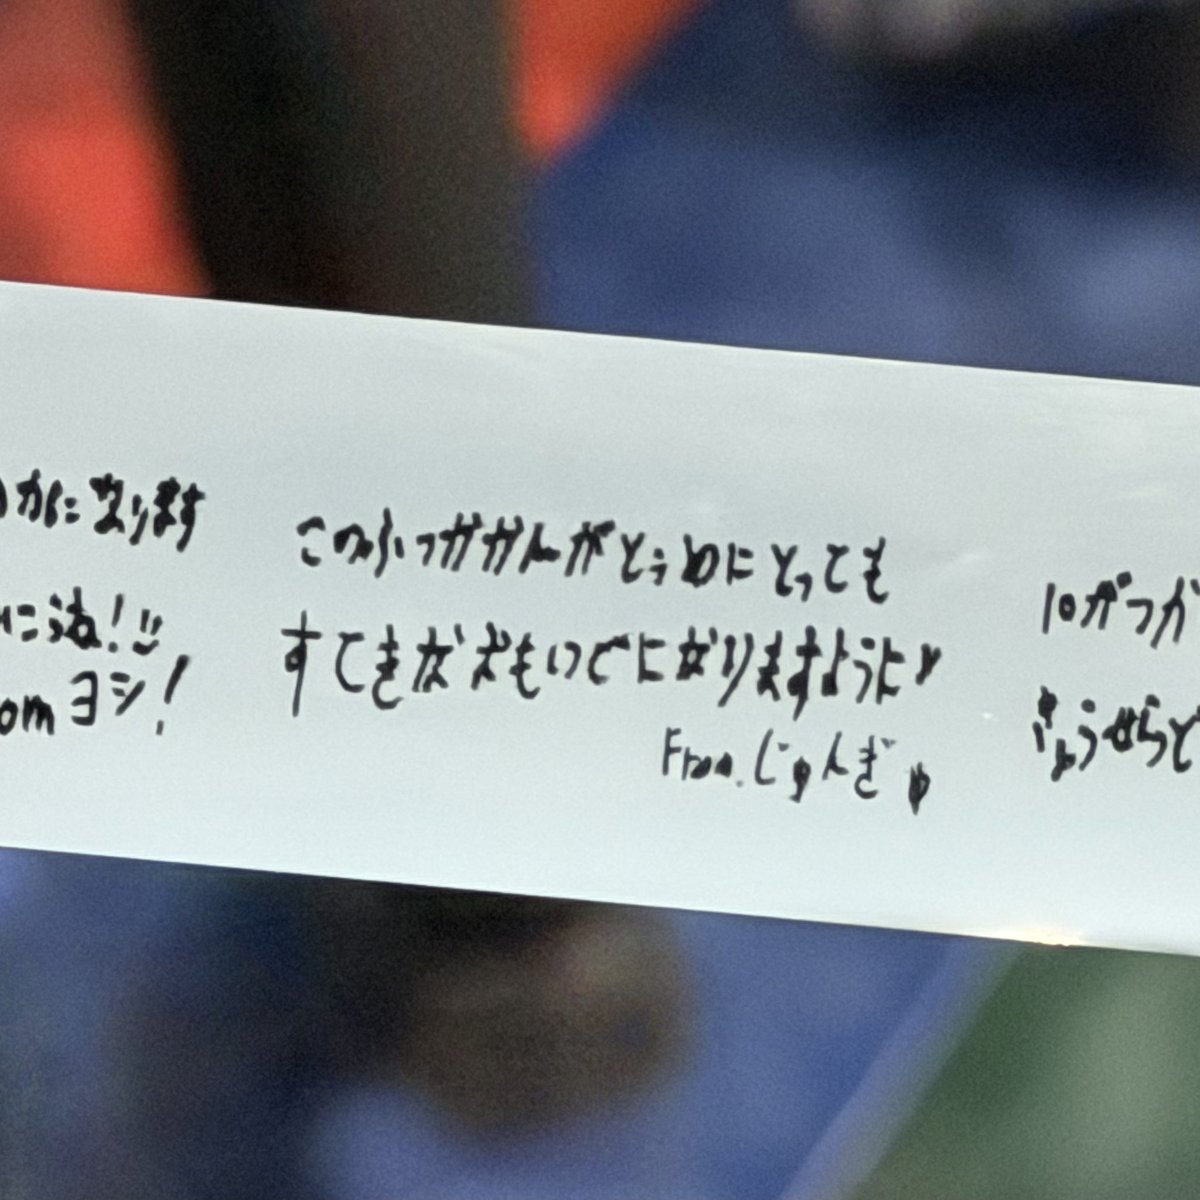 かになります
にうね!
om ヨシ!
このふつかかんがとぅめにとっても
すてきなおもいでになりますように♥
From. じゅんぎゅ
10がつか
きょうせらど